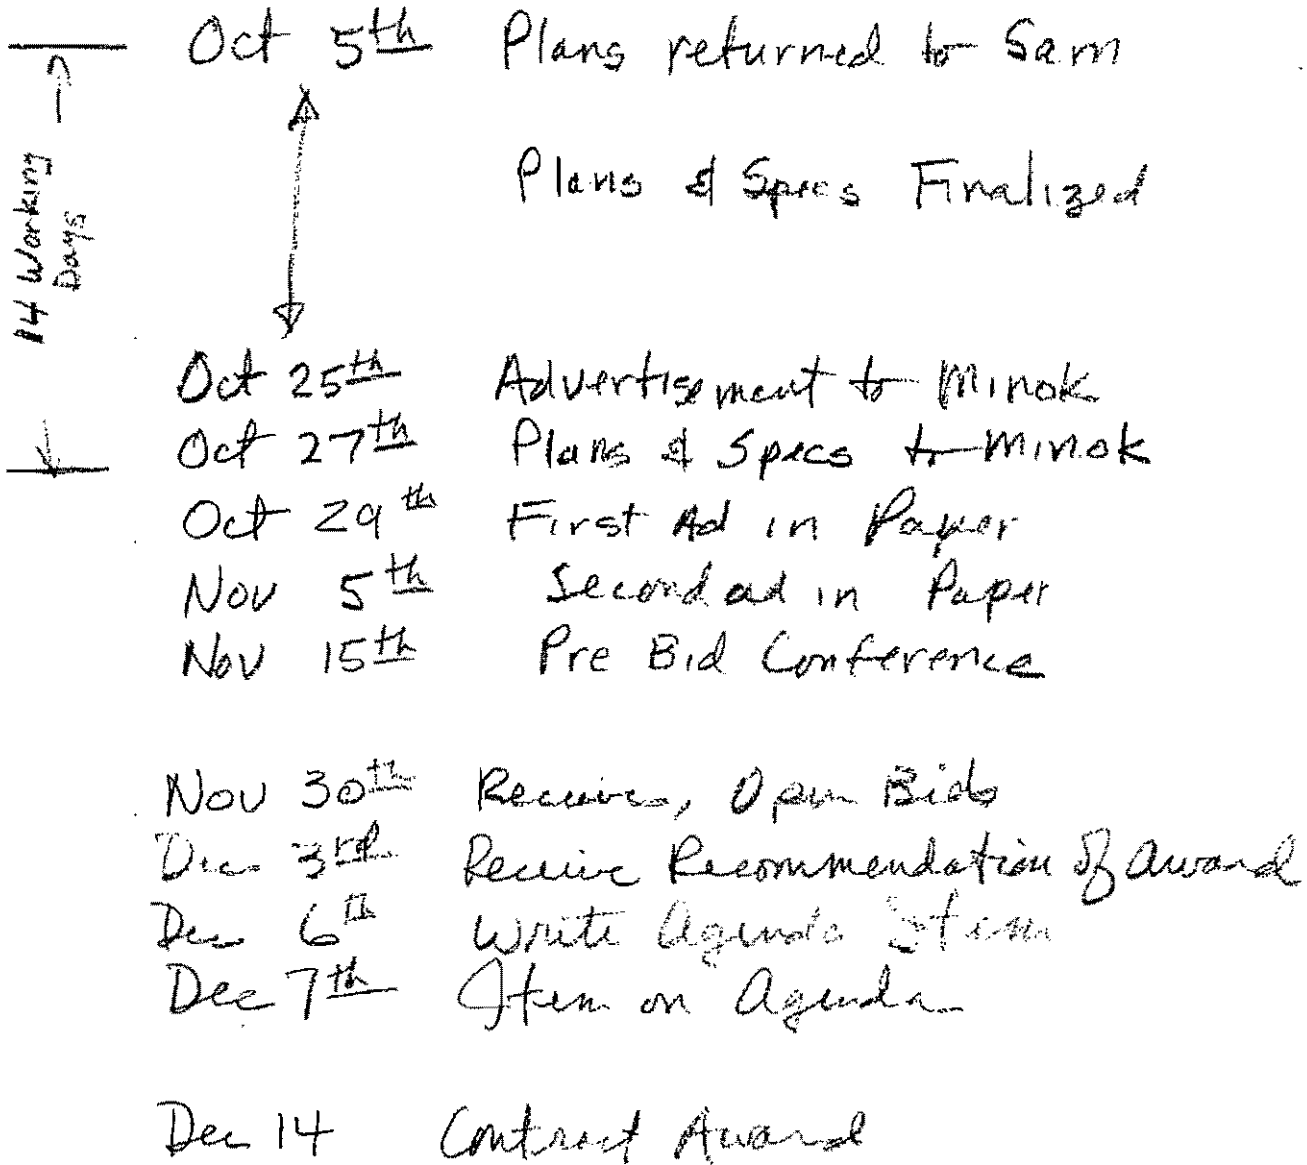 Oct 5th Plans returned to Sam
Plans & Specs Finalized
14 Working
Days
Oct 25th Advertisement to Minok
Oct 27th Plans & Specs to Minok
Oct 29th First Ad in Paper
Nov 5th Second ad in Paper
Nov 15th Pre Bid Conference
Nov 30th Receive, Open Bids
Dec 3rd Receive Recommendation of Award
Dec 6th Write Agenda Item
Dec 7th Item on Agenda
Dec 14 Contract Award